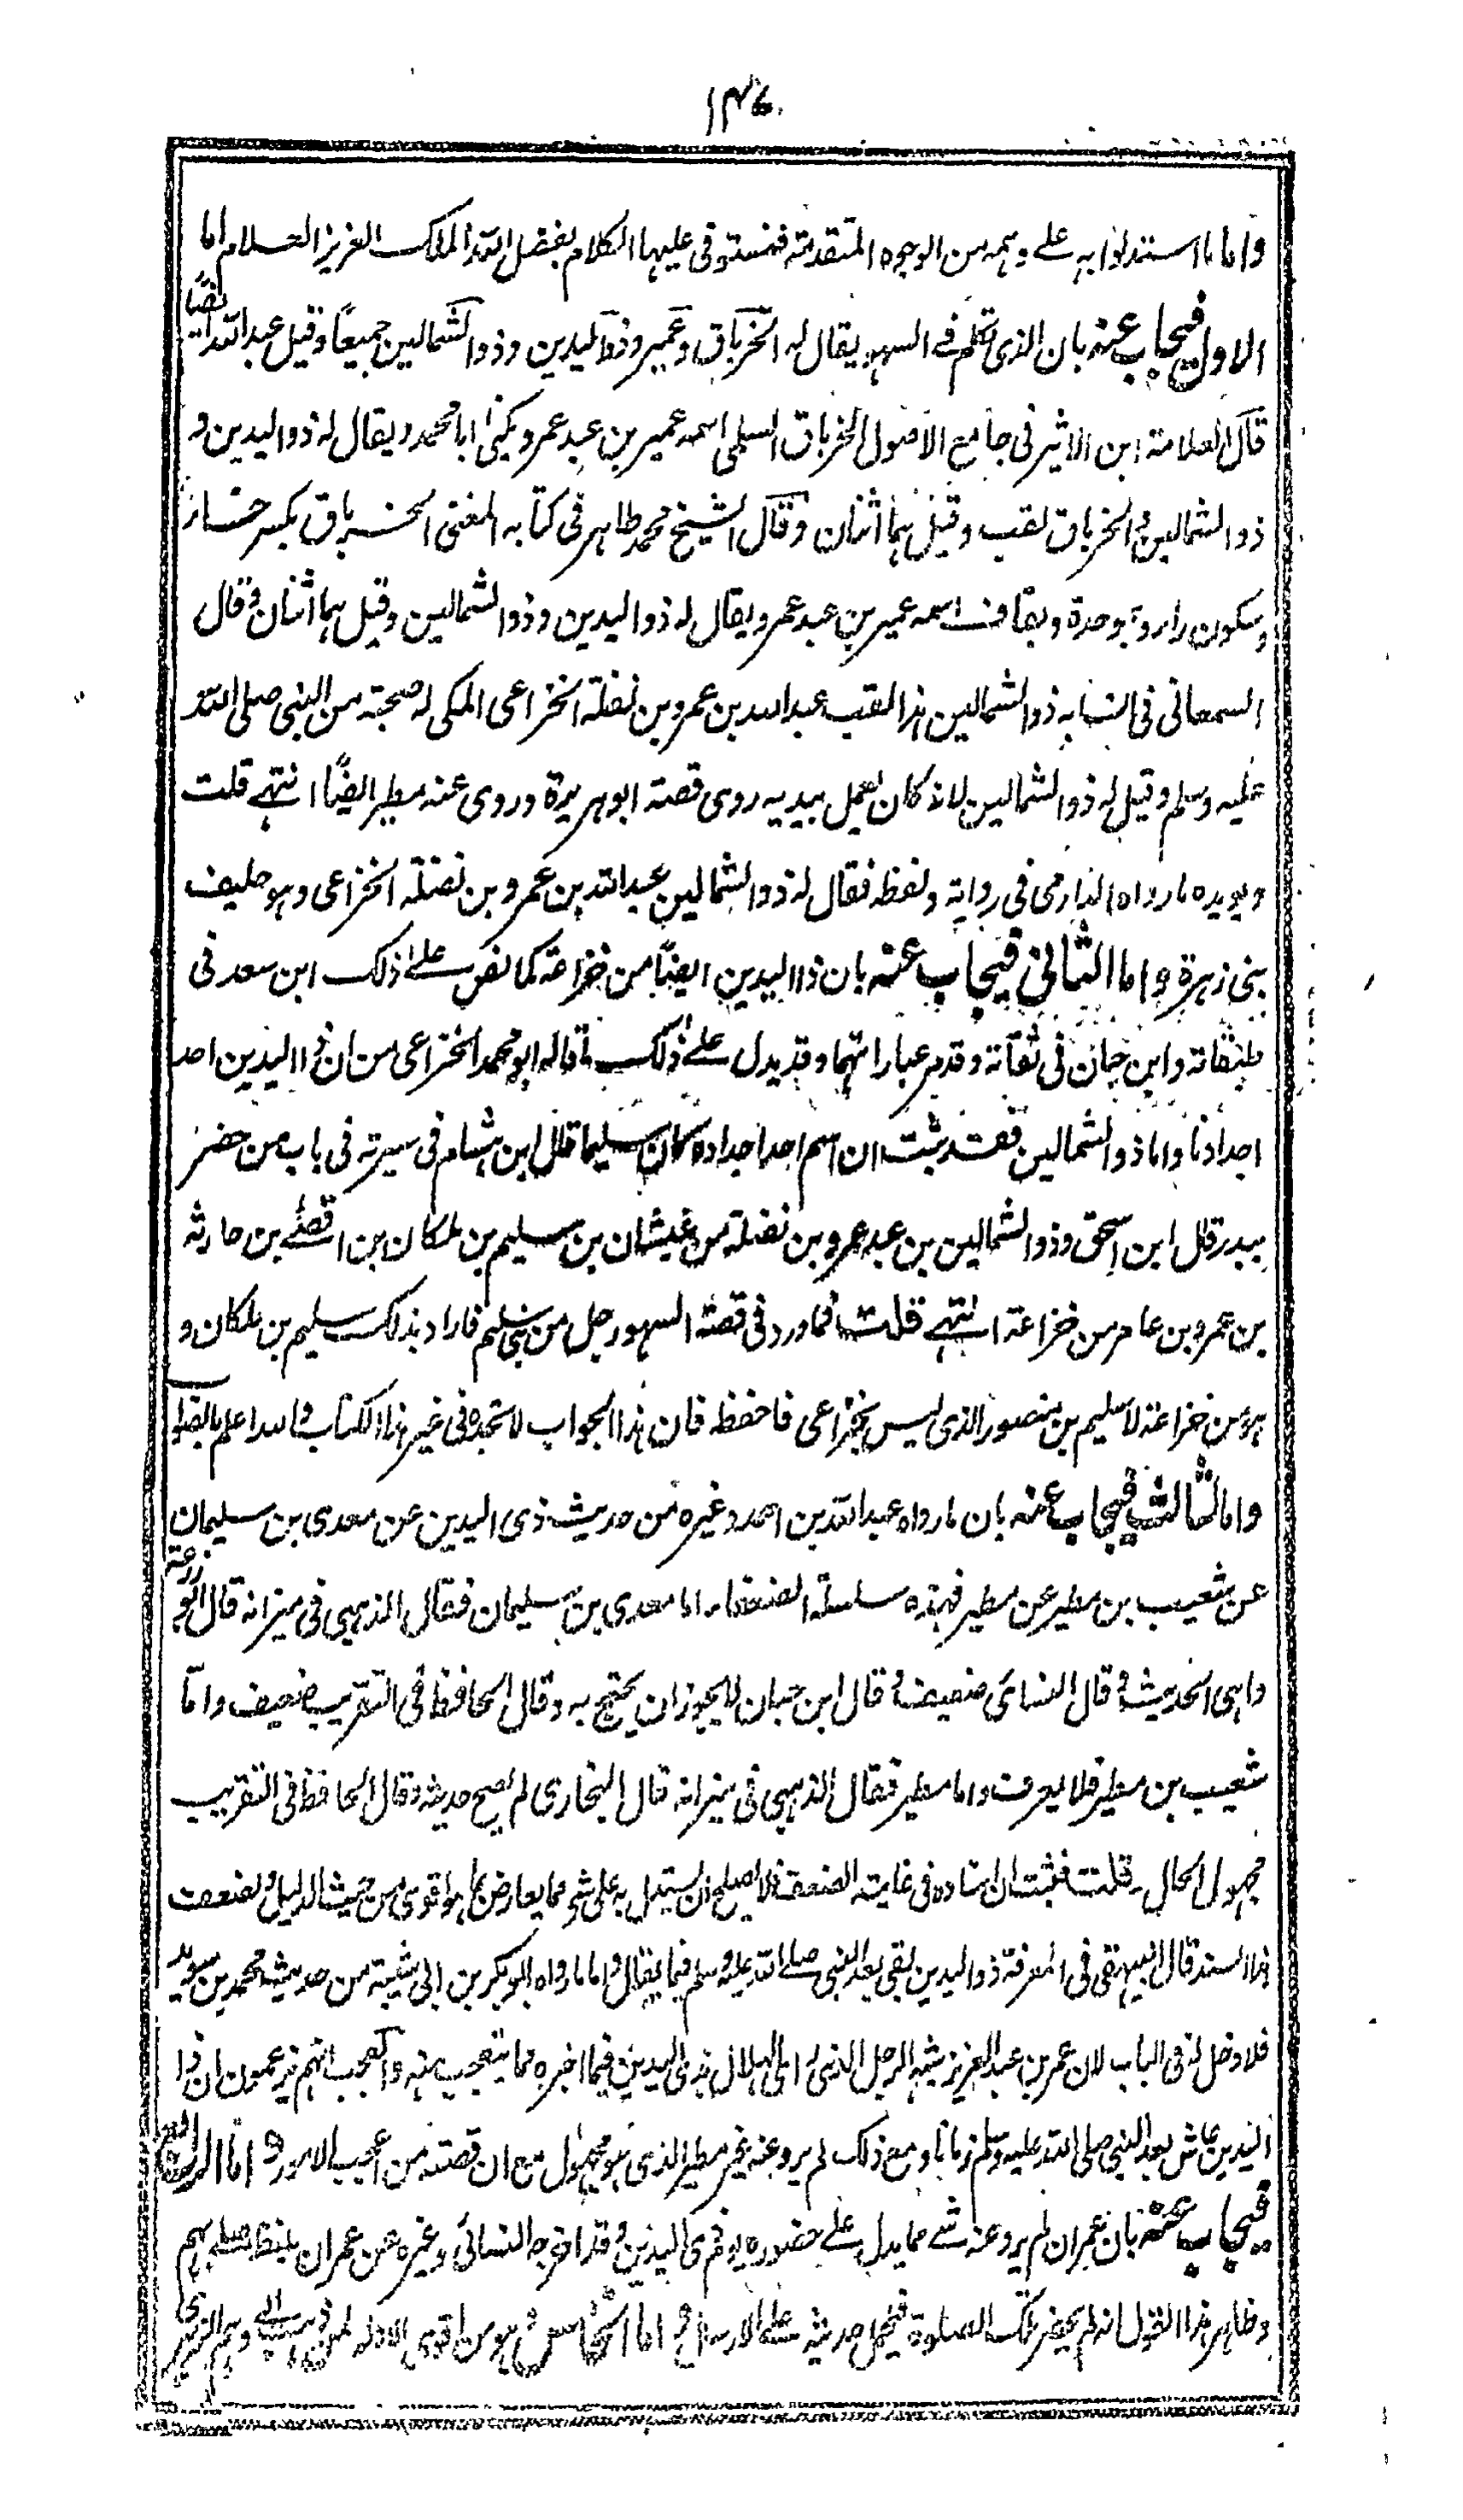 ١٣٤
واما ما استدلوا به على وهمه من الوجوه المتقدمة فنستوفى عليها الكلام بفضل الله الملك العزيز العلام اما
الاول فيجاب عنه بان الذى تكلم فى السهو يقال له الخرباق وعمير وذو اليدين وذو الشمالين جميعًا وقيل عبد الله ايضًا
قال العلامة ابن الاثير فى جامع الاصول الخرباق السلمى اسمه عمير بن عبد عمرو يكنى ابا محمد ويقال له ذو اليدين و
ذو الشمالين والخرباق لقب وقيل هما اثنان وقال الشيخ محمد طاهر فى كتابه المغنى الخرباق بكسر خاء
وسكون راء وبموحدة وبقاف اسمه عمير بن عبد عمرو يقال له ذو اليدين وذو الشمالين وقيل هما اثنان وقال
السمعانى فى انسابه ذو الشمالين هذا لقب عبد الله بن عمرو بن نضلة الخزاعى المكى له صحبة من النبى صلى الله
عليه وسلم وقيل له ذو الشمالين لانه كان يعمل بيديه روى قصته ابو هريرة وروى عنه مطير ايضًا انتهى قلت
ويويده ما رواه الدارمى فى رواية ولفظه فقال له ذو الشمالين عبد الله بن عمرو بن نضلة الخزاعى وهو حليف
بنى زهرة واما الثانى فيجاب عنه بان ذا اليدين ايضًا من خزاعة كما نص على ذلك ابن سعد فى
طبقاته وابن حبان فى ثقاته وقد مر عباراتهما وقد يدل على ذلك ما قاله ابو محمد الخزاعى من ان ذا اليدين احد
اجدادنا واما ذو الشمالين فقد ثبت ان اسم احد اجداده كان سليما قال ابن هشام فى سيرته فى باب من حضر
ببدر قال ابن اسحق وذو الشمالين بن عبد عمرو بن نضلة من غبشان بن سليم بن ملكان بن افصى بن حارثة
بن عمرو بن عامر من خزاعة انتهى قلت فما ورد فى قصة السهو رجل من بنى سليم فاراد بذلك سليم بن ملكان و
هو من خزاعة لا سليم بن منصور الذى ليس بخزاعى فاحفظه فان هذا الجواب لا تجده فى غير هذا الكتاب والله اعلم بالصواب
واما الثالث فيجاب عنه بان ما رواه عبد الله بن احمد وغيره من حديث ذى اليدين عن معدى بن سليمان
عن شعيب بن مطير عن مطير فهذه سلسلة الضعفاء اما معدى بن سليمان فقال الذهبى فى ميزانه قال ابو زرعة
واهى الحديث وقال النسائى ضعيف وقال ابن حبان لا يجوز ان يحتج به وقال الحافظ فى التقريب ضعيف واما
شعيب بن مطير فلا يعرف واما مطير فقال الذهبى فى ميزانه قال البخارى لم يصح حديثه وقال الحافظ فى التقريب
مجهول الحال قلت فثبت ان اسناده فى غاية الضعف فلا يصلح ان يستدل به على شئ مما يعارض بما هو اقوى من حيث الدليل ولضعف
هذا السند قال البيهقى فى المعرفة ذو اليدين بقى بعد النبى صلى الله عليه وسلم فيما يقال واما ما رواه ابو بكر بن ابى شيبة من حديث محمد بن سويد
فلا دخل له فى الباب لان عمر بن عبد العزيز شبه الرجل الذى راى الهلال بذى اليدين فيما اخبره مما يتعجب منه والعجب انهم يزعمون ان ذا
اليدين عاش بعد النبى صلى الله عليه وسلم زمانا ومع ذلك لم يرو عنه غير مطير الذى هو مجهول مع ان قصته من اعجب الامور واما الرابع
فيجاب عنه بان عمران لم يرو عنه شئ مما يدل على حضوره يوم ذى اليدين وقد اخرجه النسائى وغيره عن عمران بلفظ صلى بهم
وظاهر هذا القول انه لم يحضر تلك الصلوة فيحمل حديثه على الارسال واما الخامس وهو من اقوى الادلة لمن ذهب الى وهم الزهرى